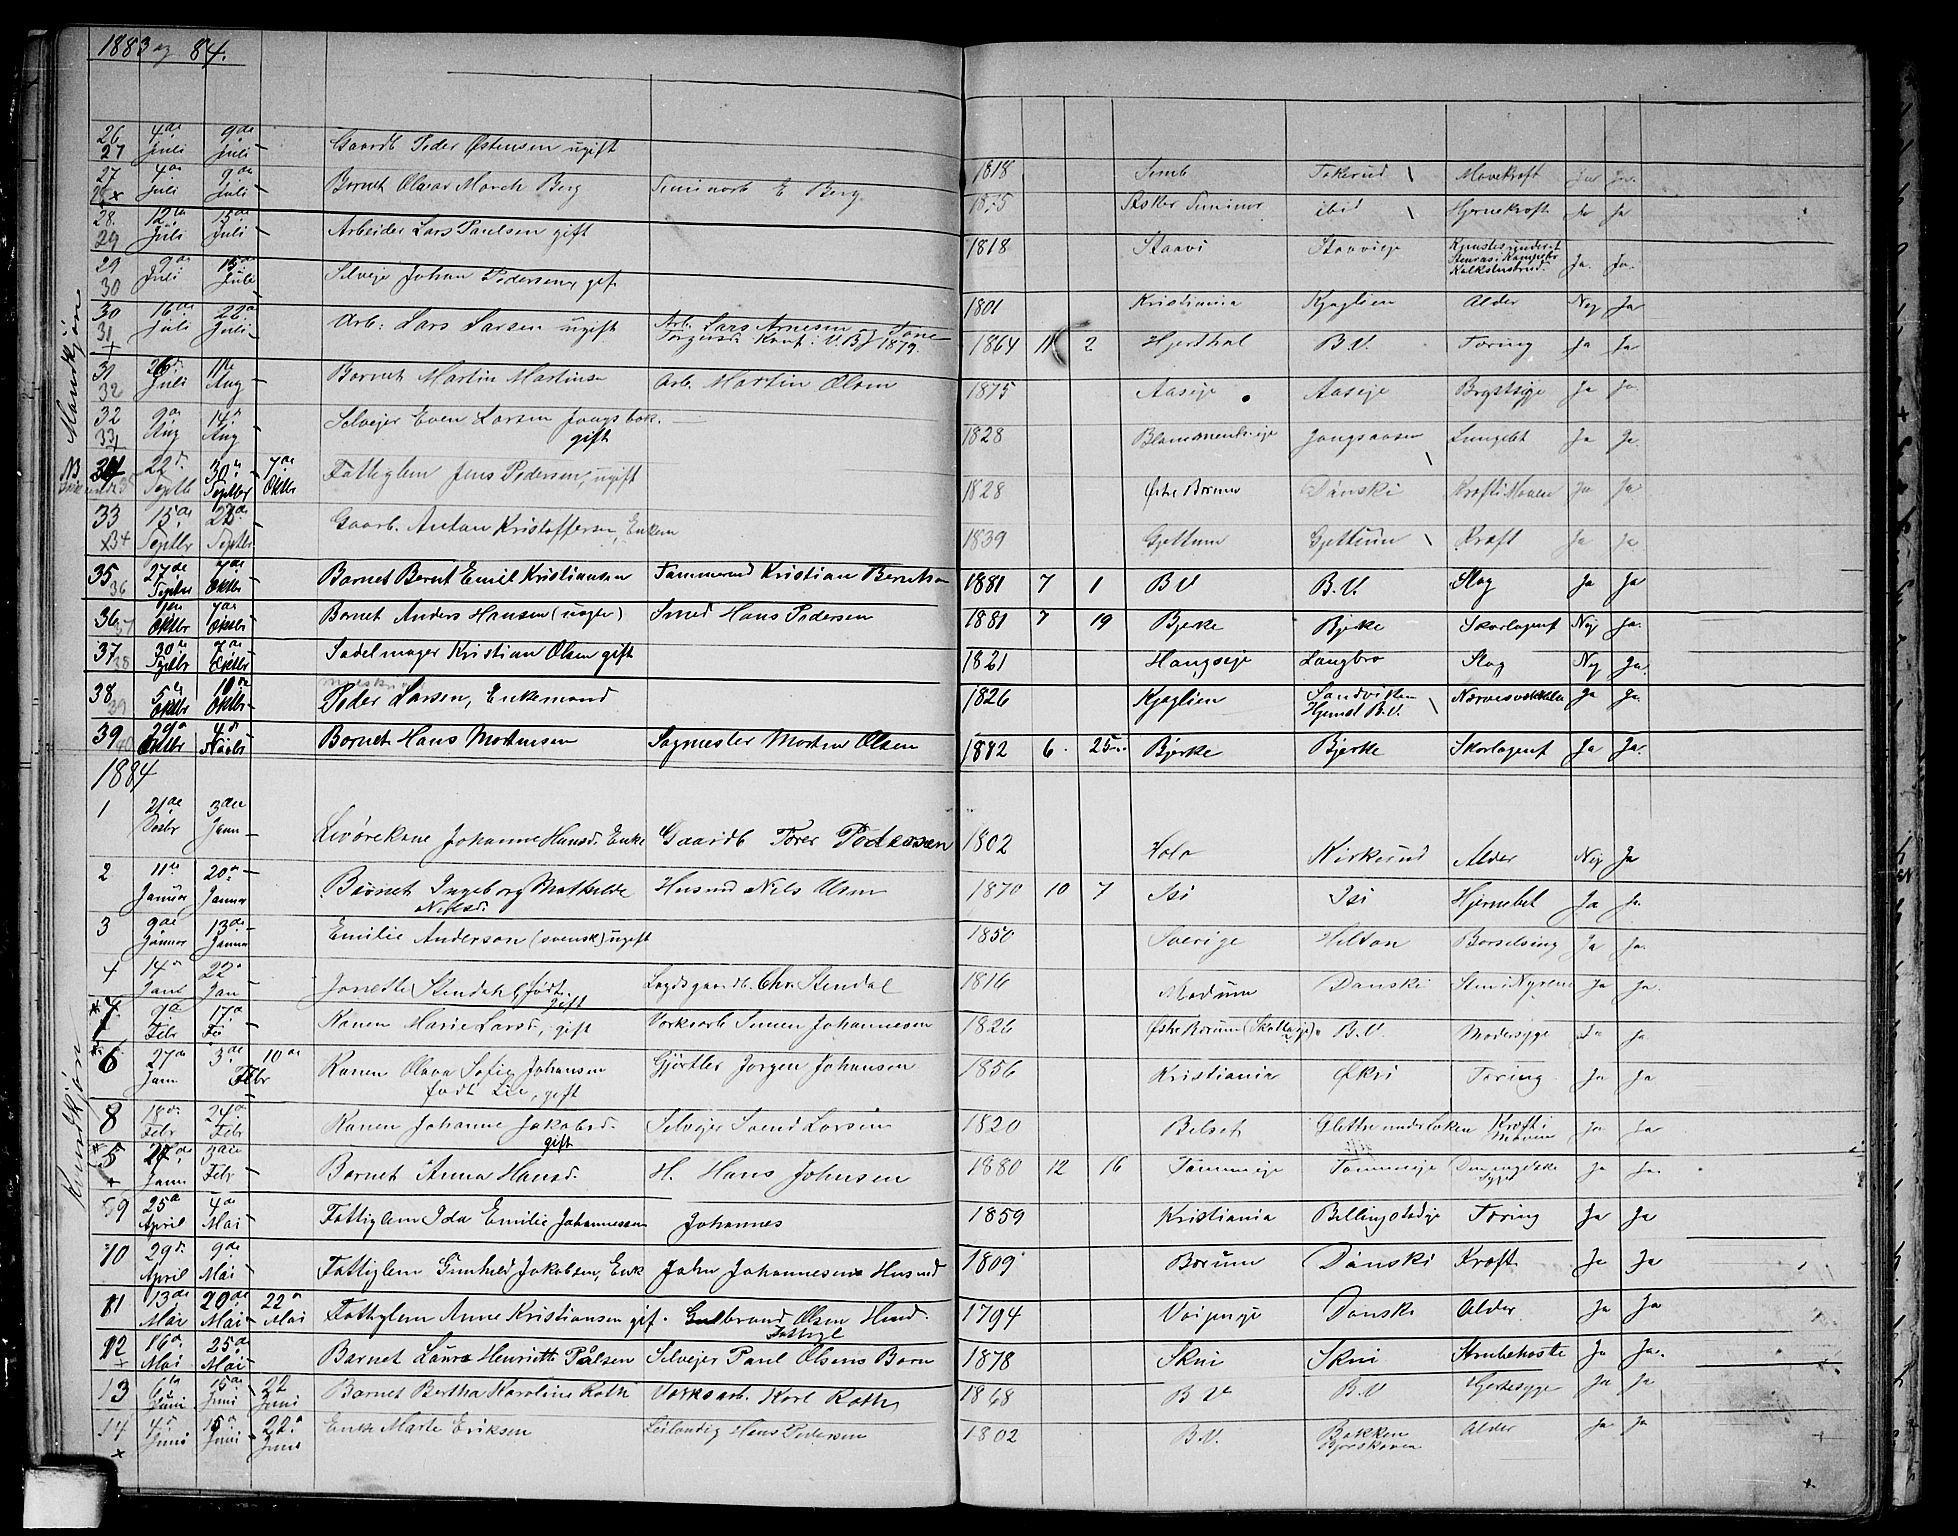 1883 og 84.
Mandkjøn
26 27 4de Juli 9de Juli Gaardb Peder Østensen ugift 1818 Semb Tokerud Mavekræft Ja Ja
27 28 x 4de Juli 9de Juli Barnet Berg Seminarb E Berg Asker Seminar ibid Ja Ja
28 29 12te Juli 15de Juli Arbeider Lars Paulsen gift 1818 Staavi Staavieje Ja. Ja.
29 30 9de Juli 15de Juli Selveje Johan Pedersen, gift 1801 Kristiania Kjaglien Alder Nej Ja
30 31 + 16de Juli 22de Juli Arb: Lars Larsen ugift Arb. Lars Arnesen 1879. 1864 11 2 Hjerdhal B.V. Tæring Ja Ja
31 32 26de Juli 11te Aug Barnet Martin Martinsen Arb. Martin Olsen 1875 Aaseje Aaseje Brystsyge Ja Ja
32 33 + 9de Aug 14de Aug Selvejer Even Larsen gift 1828 Jongsaasen Lungebt Ja Ja
NB 34 22de Septb 30te Septbr 7de Oktbr Fattiglem Jens Pedersen, ugift 1828 Østre Bærum Dønski Kræft i Maven Ja Ja
33 x34 15de Septbr 22de Septbr Gaarb. Anton Kristoffersen, Enkem 1839 Gjettum Gjettum Kræft Ja Ja
35 36 27de Septbr 7de Oktbr Barnet Bernt Emil Kristiansen Tømmermd Kristian Berntsen 1881 7 1 B V B.V. Slag Ja Ja
36 37 1te Oktbr 7de Oktbr Barnet Anders Hansen (uægte) Smed Hans Pedersen 1881 7 19 Bjerke Bjerke Skarlagenf Nej Ja.
37 38 30te Septbr 7de Oktbr Sadelmager Kristian Olsen gift 1821 Haugseje Langbro Slag Nej Ja.
38 39 5te Oktbr 10de Oktbr Peder Larsen, Enkemand 1826 Kjaglien Sandviken Hjemst B.V. Nervesvækkelse Ja Ja.
39 40 29de Oktbr 4de Novbr Barnet Hans Mortensen Sagmester Morten Olsen 1882 6 25 Bjerke Bjerke Skarlagenf Ja Ja.
1884
Kvindkjøn
1 21de Desbr 3die Janu Johanne Hansd. Enke Gaardb Torer Pedersen 1802 Hole Kirkerud Alder Nej Ja
2 11te Januar 20de Januar Barnet Ingeborg Mathilde Nilsd. Husmd Nils Olsen 1870 10 7 Isi Isi Hjernebet Ja Ja
3 9de Januar 13de Januar Emilie Anderson (svensk) ugift 1850 Sverige Hilton Barselseng Ja Ja.
4 14de Janu 22de Jan Jonette Stendal født gift Chr. Stendal 1816 Modum Dønski Sten i Nyrene Ja Ja.
* 7 9de Febr 17de Feb Konen Marie Larsd, gift Verksarb Simen Johannesen 1826 Østre Bærum B.V. Modersyge Ja Ja
* 6 27de Jann 3de Febr 10de Konen Olava Sofie Johansen født Lie, gift Gjørtler Jørgen Johansen 1856 Kristiania Økri Tæring Ja Ja
8 18de Febr 24de Febr Konen Johanne Jakobsd. gift Selvejer Svend Larsen 1820 Belset Kræft i Maven Ja Ja
* 5 + 27de Jann 3die Febr Barnet Anna Hansd. H. Hans Johnsen 1880 12 16 Tømmeeje Tømmeeje Den engelske Syge Ja Ja.
9 25de April 4de Mai Fattiglem Ida Emilie Johannesen Johannes 1859 Kristiania Billingstadeje Tæring Ja Ja
10 29de April 9de Mai Fattiglem Gunhild Jakobsen, Enk John Johannesens Husmd 1809 Bærum Dønski Kræft Ja Ja
11 13de Mai 20de Mai 22de Mai Fattiglem Anne Kristiansen gif. Gulbrand Olsen Fattigl 1794 Dønski Alder Ja Ja
12 + 16de Mai 25de Mai Barnet Laura Henriette Pålsen Selvejer Paul Olsens Barn 1878 Skui Skui Strubehoste Ja Ja.
13 6te Juni 15de Juni 22 Juni Barnet Bertha Karoline Roth Verksarb. Karl Roth 1868 B V B.V Hjertesyge Ja Ja
14 x 4de Juni 15de Juni 22de Juni Enke Marte Eriksen Leilændig Hans Pedersen 1802 B.V. Bakken Bjørskoven Alder Ja Ja